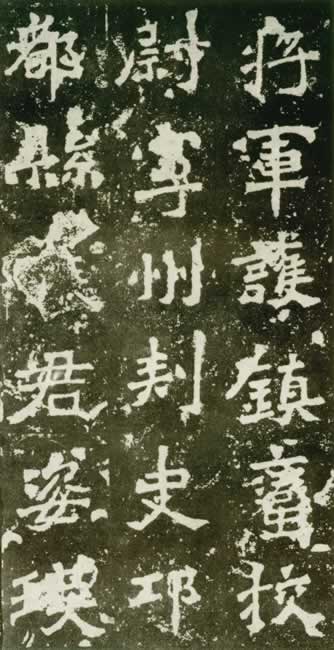 將軍護鎮蠻挍
尉寧州刾史邛
都縣君姿瑛